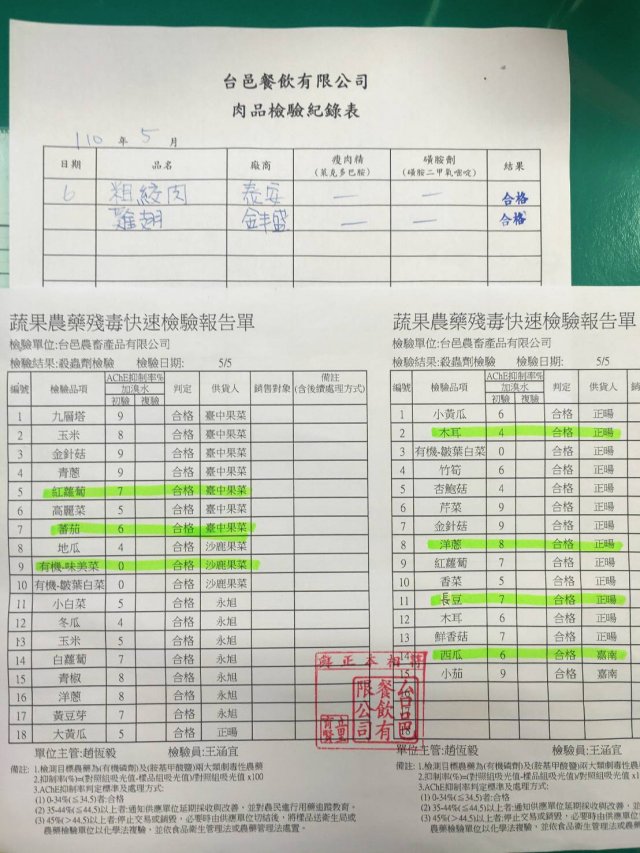 台邑餐飲有限公司
肉品檢驗紀錄表
110 年 5 月
日期 品名 廠商 瘦肉精 (萊克多巴胺) 磺胺劑 (磺胺二甲氧嘧啶) 結果
6 粗絞肉 泰安 — — 合格
雞翅 金丰盛 — — 合格
蔬果農藥殘毒快速檢驗報告單
檢驗單位:台邑農畜產品有限公司
檢驗結果:殺蟲劑檢驗 檢驗日期: 5/5
編號 檢驗品項 AChE抑制率% 加溴水 初驗 複驗 判定 供貨人 銷售對象 備註 (含後續處理方式)
1 九層塔 9 合格 臺中果菜
2 玉米 8 合格 臺中果菜
3 金針菇 9 合格 臺中果菜
4 青蔥 9 合格 臺中果菜
5 紅蘿蔔 7 合格 臺中果菜
6 高麗菜 5 合格 臺中果菜
7 蕃茄 6 合格 臺中果菜
8 地瓜 4 合格 沙鹿果菜
9 有機-味美菜 0 合格 沙鹿果菜
10 有機-皺葉白菜 0 合格 沙鹿果菜
11 小白菜 5 合格 永旭
12 冬瓜 4 合格 永旭
13 玉米 5 合格 永旭
14 白蘿蔔 7 合格 永旭
15 青椒 8 合格 永旭
16 洋蔥 8 合格 永旭
17 黃豆芽 7 合格 永旭
18 大黃瓜 5 合格 正暘
單位主管:趙恆毅 檢驗員:王涵宜
備註: 1.檢測目標農藥為(有機磷劑)及(胺基甲酸鹽)兩大類劇毒性農藥
2.抑制率(%)=(對照組吸光值-樣品組吸光值)/對照組吸光值 x100
3.AChE抑制率判定標準及處理方式:
(1) 0-34%(≤34.5)者:合格
(2) 35-44%(≤44.5)以上者:通知供應單位延期採收與改善，並對農民進行用藥追蹤教育。
(3) 45%(>44.5)以上者:停止交易或銷毀，必要時由供應單位切結後，將樣品送衛生局或
農藥檢驗單位以化學法複驗，並依食品衛生管理法或農藥管理法處置。
蔬果農藥殘毒快速檢驗報告單
檢驗單位:台邑農畜產品有限公司
檢驗結果:殺蟲劑檢驗 檢驗日期: 5/5
編號 檢驗品項 AChE抑制率% 加溴水 初驗 複驗 判定 供貨人 銷
1 小黃瓜 6 合格 正暘
2 木耳 4 合格 正暘
3 有機-皺葉白菜 0 合格 正暘
4 竹筍 6 合格 正暘
5 杏鮑菇 4 合格 正暘
6 芹菜 9 合格 正暘
7 金針菇 9 合格 正暘
8 洋蔥 8 合格 正暘
9 紅蘿蔔 7 合格 正暘
10 香菜 5 合格 正暘
11 長豆 7 合格 正暘
12 木耳 6 合格 正暘
13 鮮香菇 7 合格 正暘
14 西瓜 6 合格 嘉南
15 小茄 9 合格 嘉南
單位主管:趙恆毅 檢驗員:王涵宜
備註: 1.檢測目標農藥為(有機磷劑)及(胺基甲酸鹽)兩大類劇毒性農藥
2.抑制率(%)=(對照組吸光值-樣品組吸光值)/對照組吸光值 x1
3.AChE抑制率判定標準及處理方式:
(1) 0-34%(≤34.5)者:合格
(2) 35-44%(≤44.5)以上者:通知供應單位延期採收與改善，並
(3) 45%(>44.5)以上者:停止交易或銷毀，必要時由供應單位切
農藥檢驗單位以化學法複驗，並依食品衛生管理法或農藥管
與正本相符
台邑餐飲有限公司